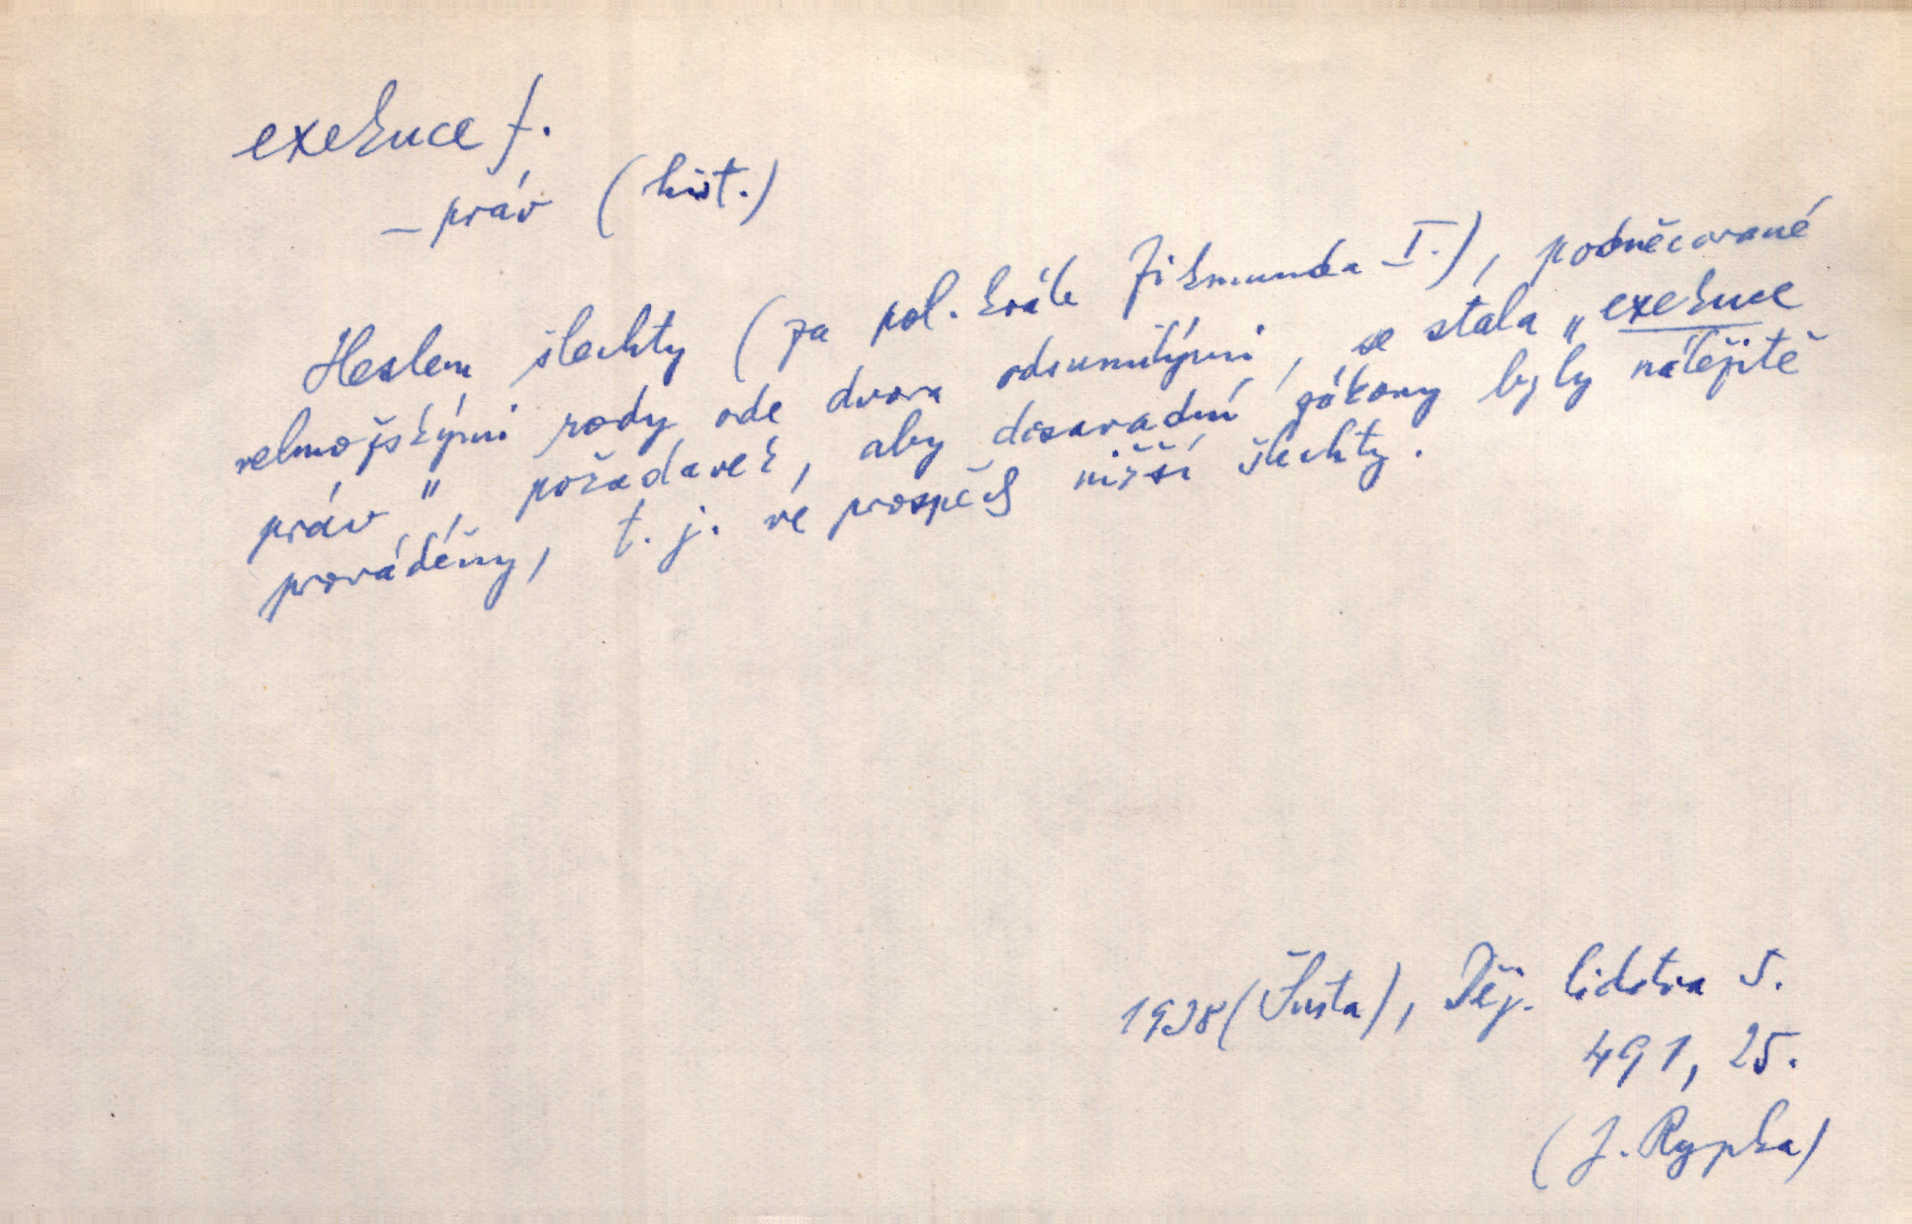 exekuce f.
– práv (hist.)
Heslem šlechty (za pol. krále Zikmunda I.), podněcované
velmožskými rody ode dvora odsunutými, se stala „exekuce
práv", požadavek, aby dosavadní zákony byly náležitě
prováděny, t. j. ve prospěch nižší šlechty.
1938 (Šusta), Děj. lidstva 5.
491, 25.
(J. Rypka)